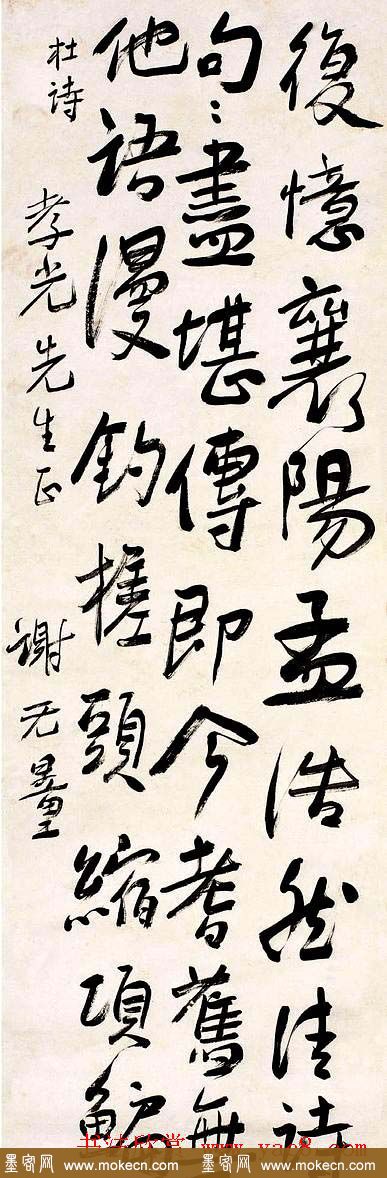 復憶襄陽孟浩然清詩
句〻盡堪傳即今耆舊無
他語漫釣槎頭縮項鯿
杜詩
孝光先生正
謝无量
书法欣赏 www.yac8.com
墨客网 www.mokecn.com 墨客网 www.mokecn.com